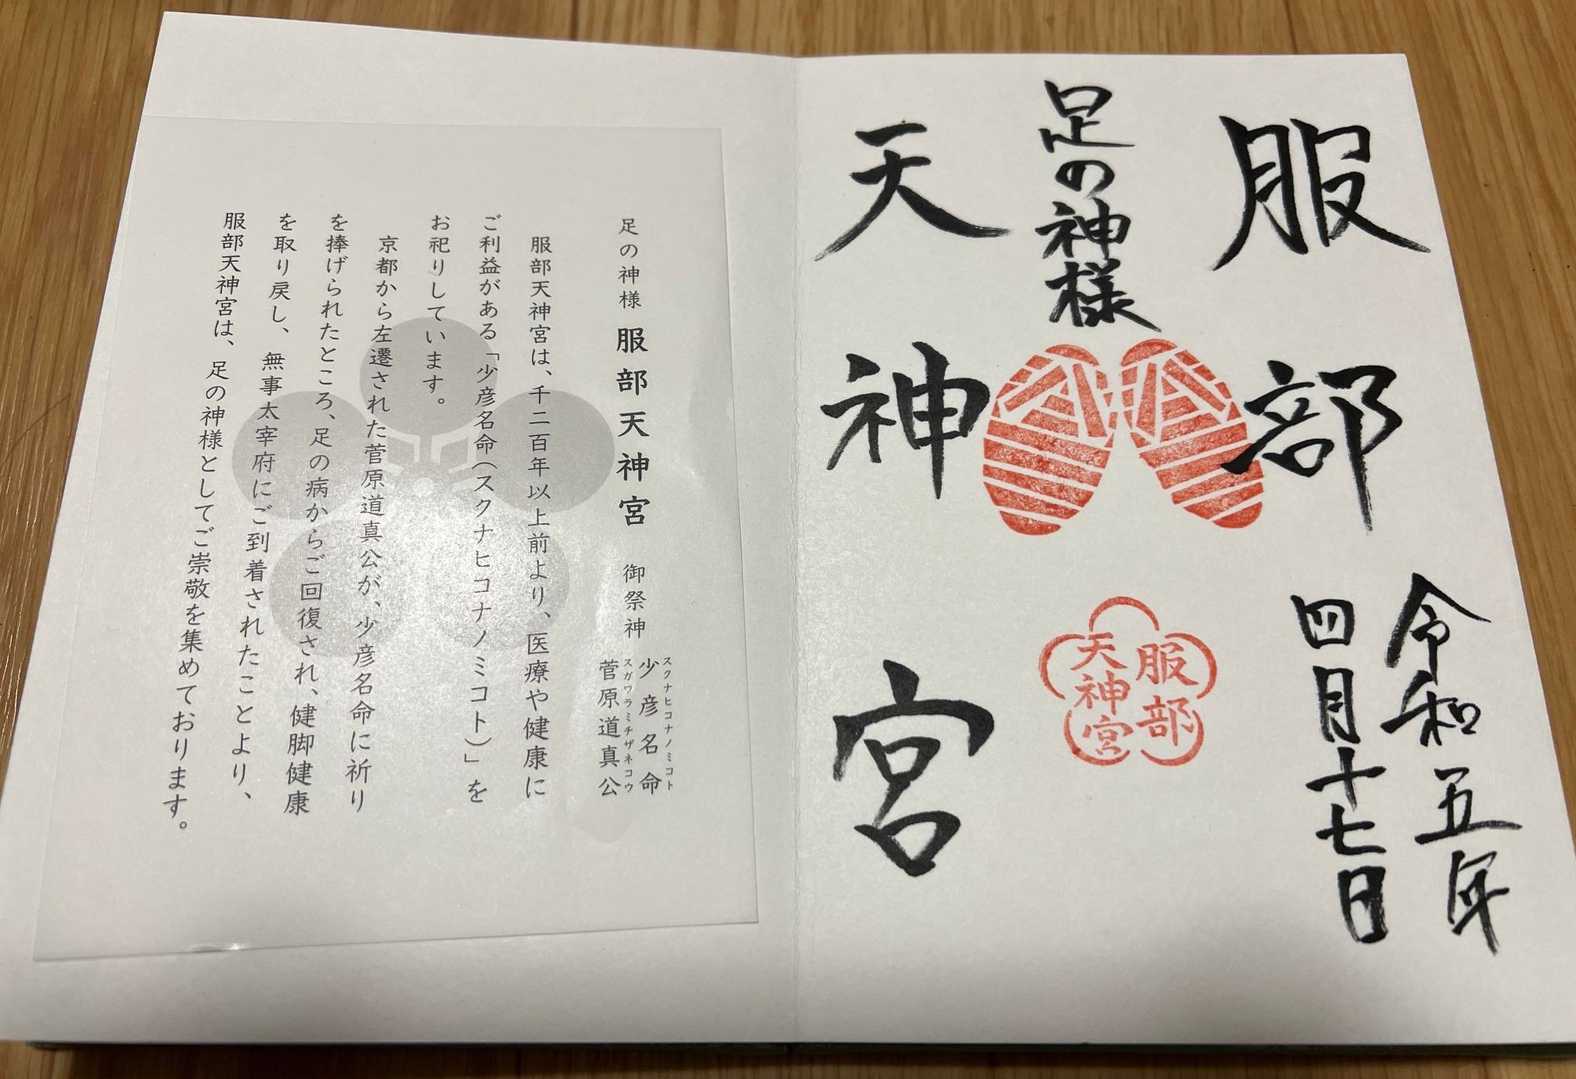 服部
足の神様
天神宮
令和五年
四月十七日
服部
天神宮
足の神様 服部天神宮 御祭神
スクナヒコナノミコト
少彦名命
スガワラミチザネコウ
菅原道真公
服部天神宮は、千二百年以上前より、医療や健康に
ご利益がある「少彦名命(スクナヒコナノミコト)」を
お祀りしています。
京都から左遷された菅原道真公が、少彦名命に祈り
を捧げられたところ、足の病からご回復され、健脚健康
を取り戻し、無事太宰府にご到着されたことより、
服部天神宮は、足の神様としてご崇敬を集めております。